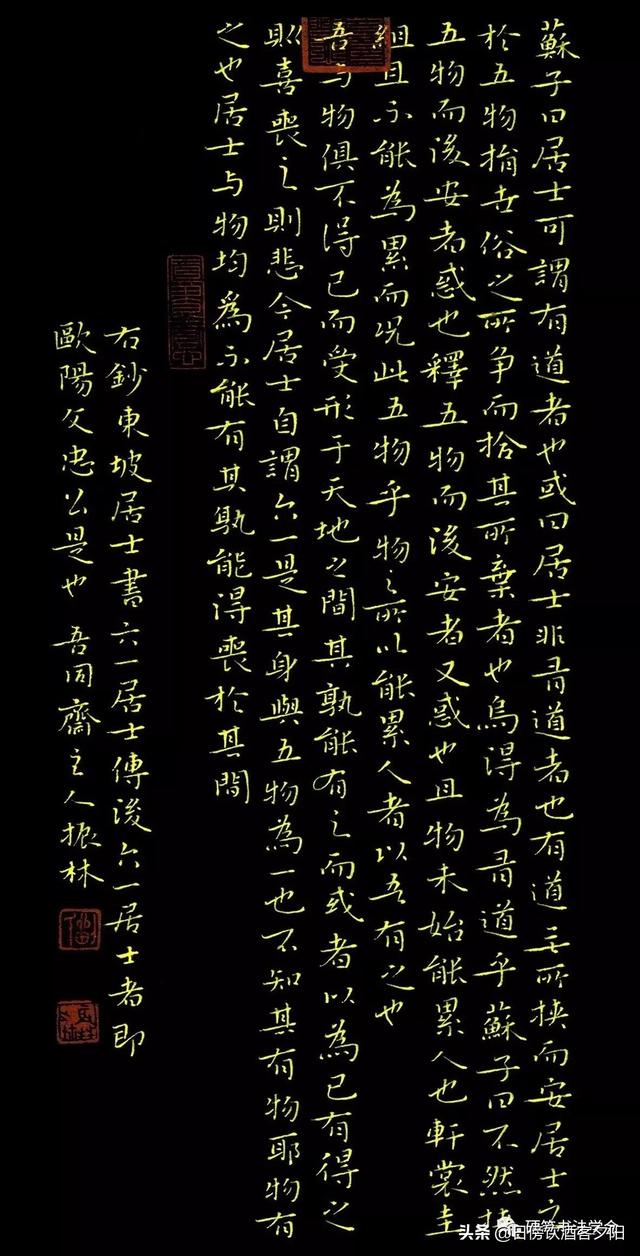 蘇子曰居士可謂有道者也或曰居士非有道者也有道无所挾而安居士之
於五物捐世俗之所争而拾其所棄者也烏得為有道乎蘇子曰不然挾
五物而後安者惑也釋五物而後安者又惑也且物未始能累人也軒裳圭
組且不能為累而况此五物乎物之所以能累人者以吾有之也
吾与物俱不得已而受形于天地之間其孰能有之而或者以為己有得之
則喜喪之則悲今居士自謂六一是其身與五物為一也不知其有物耶物有
之也居士与物均為不能有其孰能得喪於其間
右鈔東坡居士書六一居士傳後六一居士者即
歐陽文忠公是也 吾同齋主人振林
硬笔书法学会
头条 饮酒客夕阳